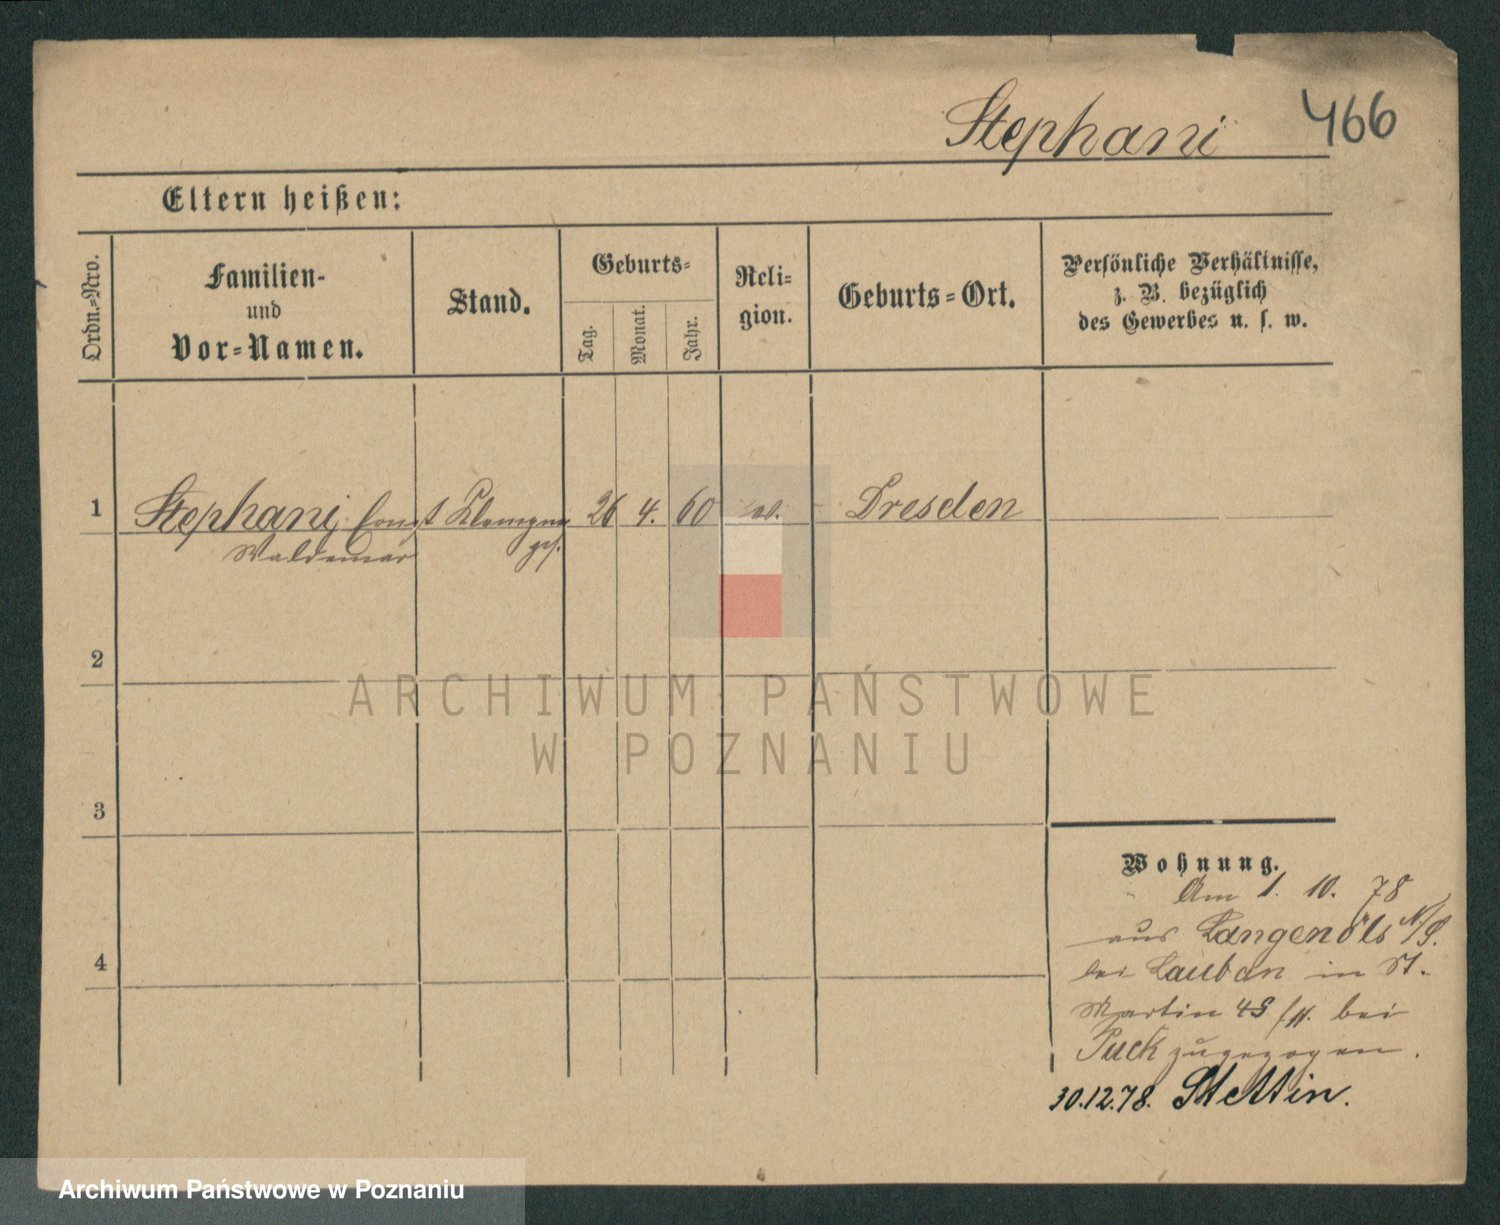 Stephani
466
Eltern heißen:
Ordn.-Nro.
Familien-
und
Vor-Namen.
Stand.
Geburts-
Tag.
Monat.
Jahr.
Reli-
gion.
Geburts-Ort.
Persönliche Verhältnisse,
z. B. bezüglich
des Gewerbes u. s. w.
1
Stephani Ernst
Waldemar
Klempner
ges.
26
4.
60
ev.
Dresden
2
ARCHIWUM PAŃSTWOWE
W POZNANIU
3
Wohnung.
Am 1. 10. 78
aus Langenöls
bei Lauban in St.
Martin 48 bei
Puck zugezogen.
30.12.78. Stettin.
4
Archiwum Państwowe w Poznaniu